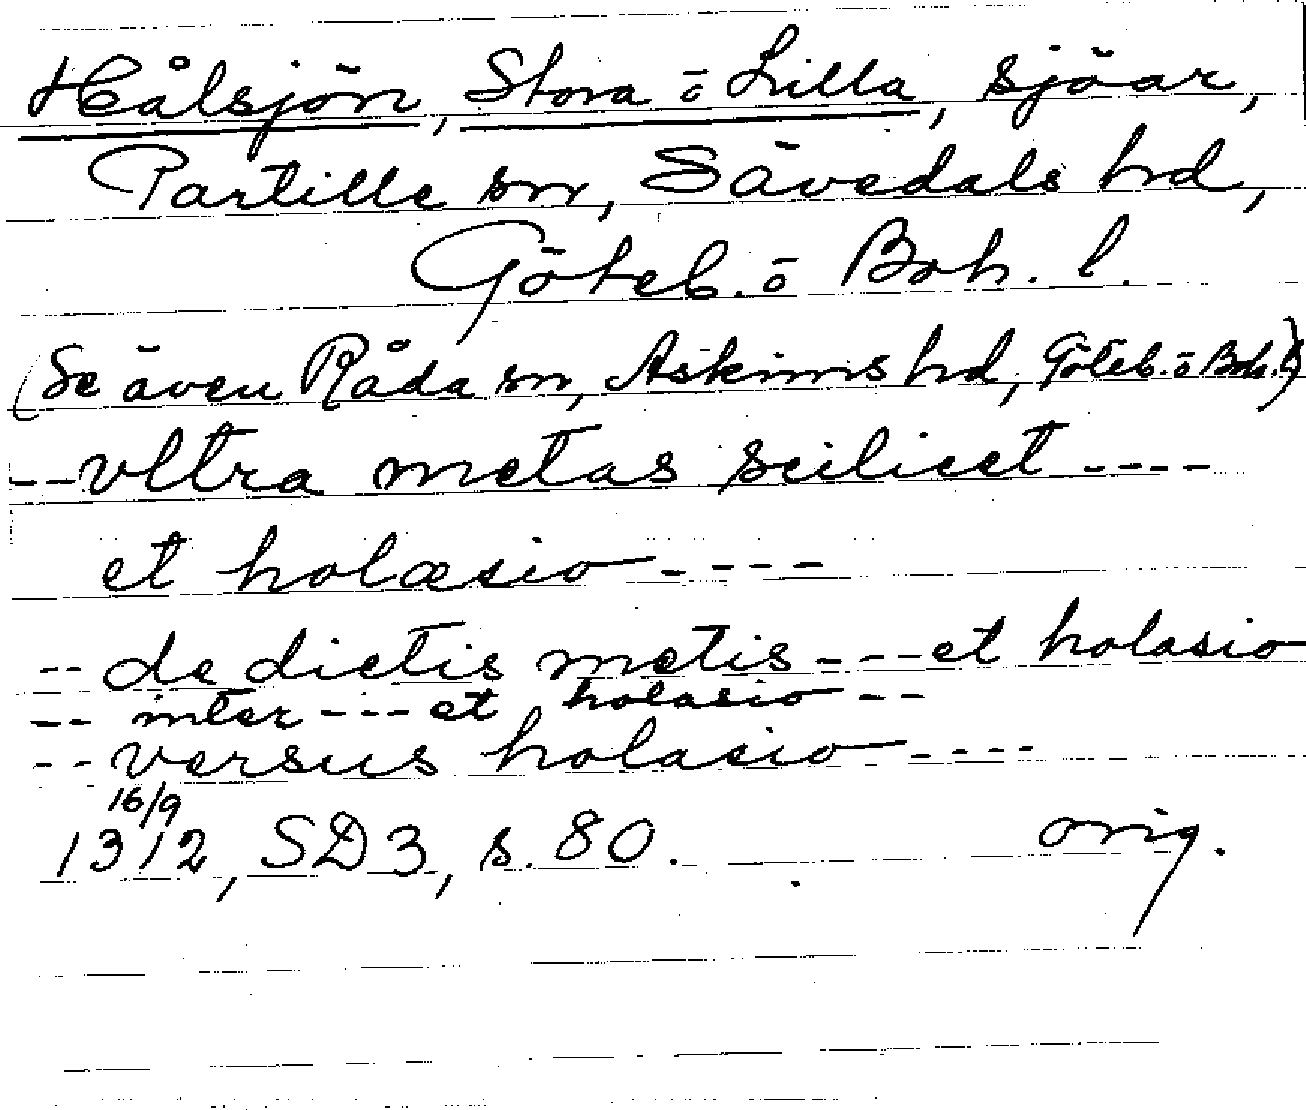 Hålsjön, Stora ō Lilla, sjöar,
Partille sn, Sävedals hd,
Göteb. ō Boh. l.
(Se även Råda sn, Askims hd, Göteb. ō Boh. l)
-- vltra metas scilicet ----
et holæsio ----
-- de dictis metis --- et holasio
-- inter --- et holasio --
-- versus holasio ----
16/9
1312, SD3, s. 80. orig.